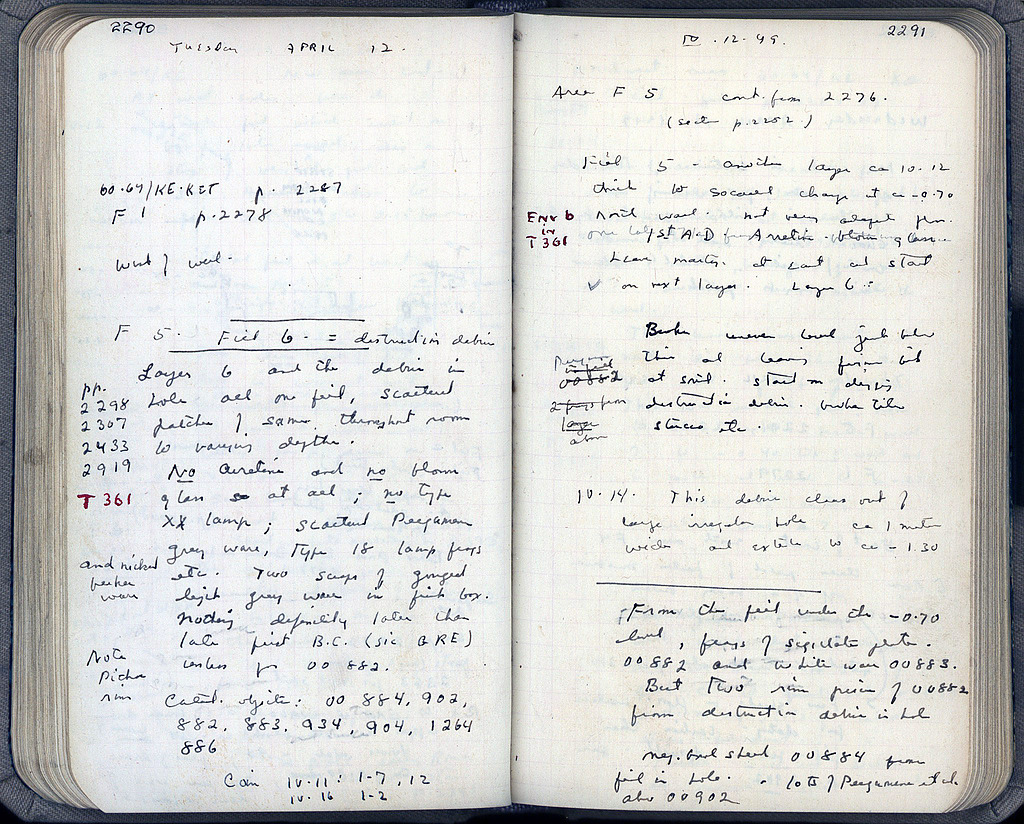 2290
Tuesday APRIL 12.
60.64/KE.KET p. 2287
F 1 p.2278
Work / well.
F 5. Field 6. = destruction debris
Layer 6 and the debris in
hole all one fill, scattered
patches of same throughout room
to varying depths.
pp.
2298
2307
2433
2919
T 361
No Arretine and no blown
glass so at all; no type
XX lamp; scattered Pergamene
gray ware, Type 18 lamp frags
etc. Two scraps of gouged
light gray ware in fill box.
Nothing definitely later than
late first B.C. (sic GRE)
unless for 00 882.
and nicked
beaker
ware
Note
Pichon
rim
Catal. objects: 00 884, 902,
882, 883, 934, 904, 1264
886
Coin IV.11: 1-7, 12
IV.16 1-2
2291
IV.12.49.
Area F 5 cont. from 2276.
(section p.2252.)
Field 5 - another layer ca 10-12
thick to second change at ca -0.70
north wall. not very
1st A.D Arretine. blown glass
marks. at east and start
✓ on next layer. Layer 6 =
Env b
in
T 361
uneven level just below
this and fill
at south. start on
destruction debris. broken tile
stucco etc.
00882
2 frags from
large
above
IV.14. This debris clears out of
large irregular hole. ca 1 meter
wide and extends to ca -1.30
From the fill under the -0.70
level, frags of sigillate plate.
00882 and white ware 00883.
But two rim pieces of 00882
from destruction debris in hole
neg. bowl sherd 00884 from
fill in hole. - lots of Pergamene
also 00902